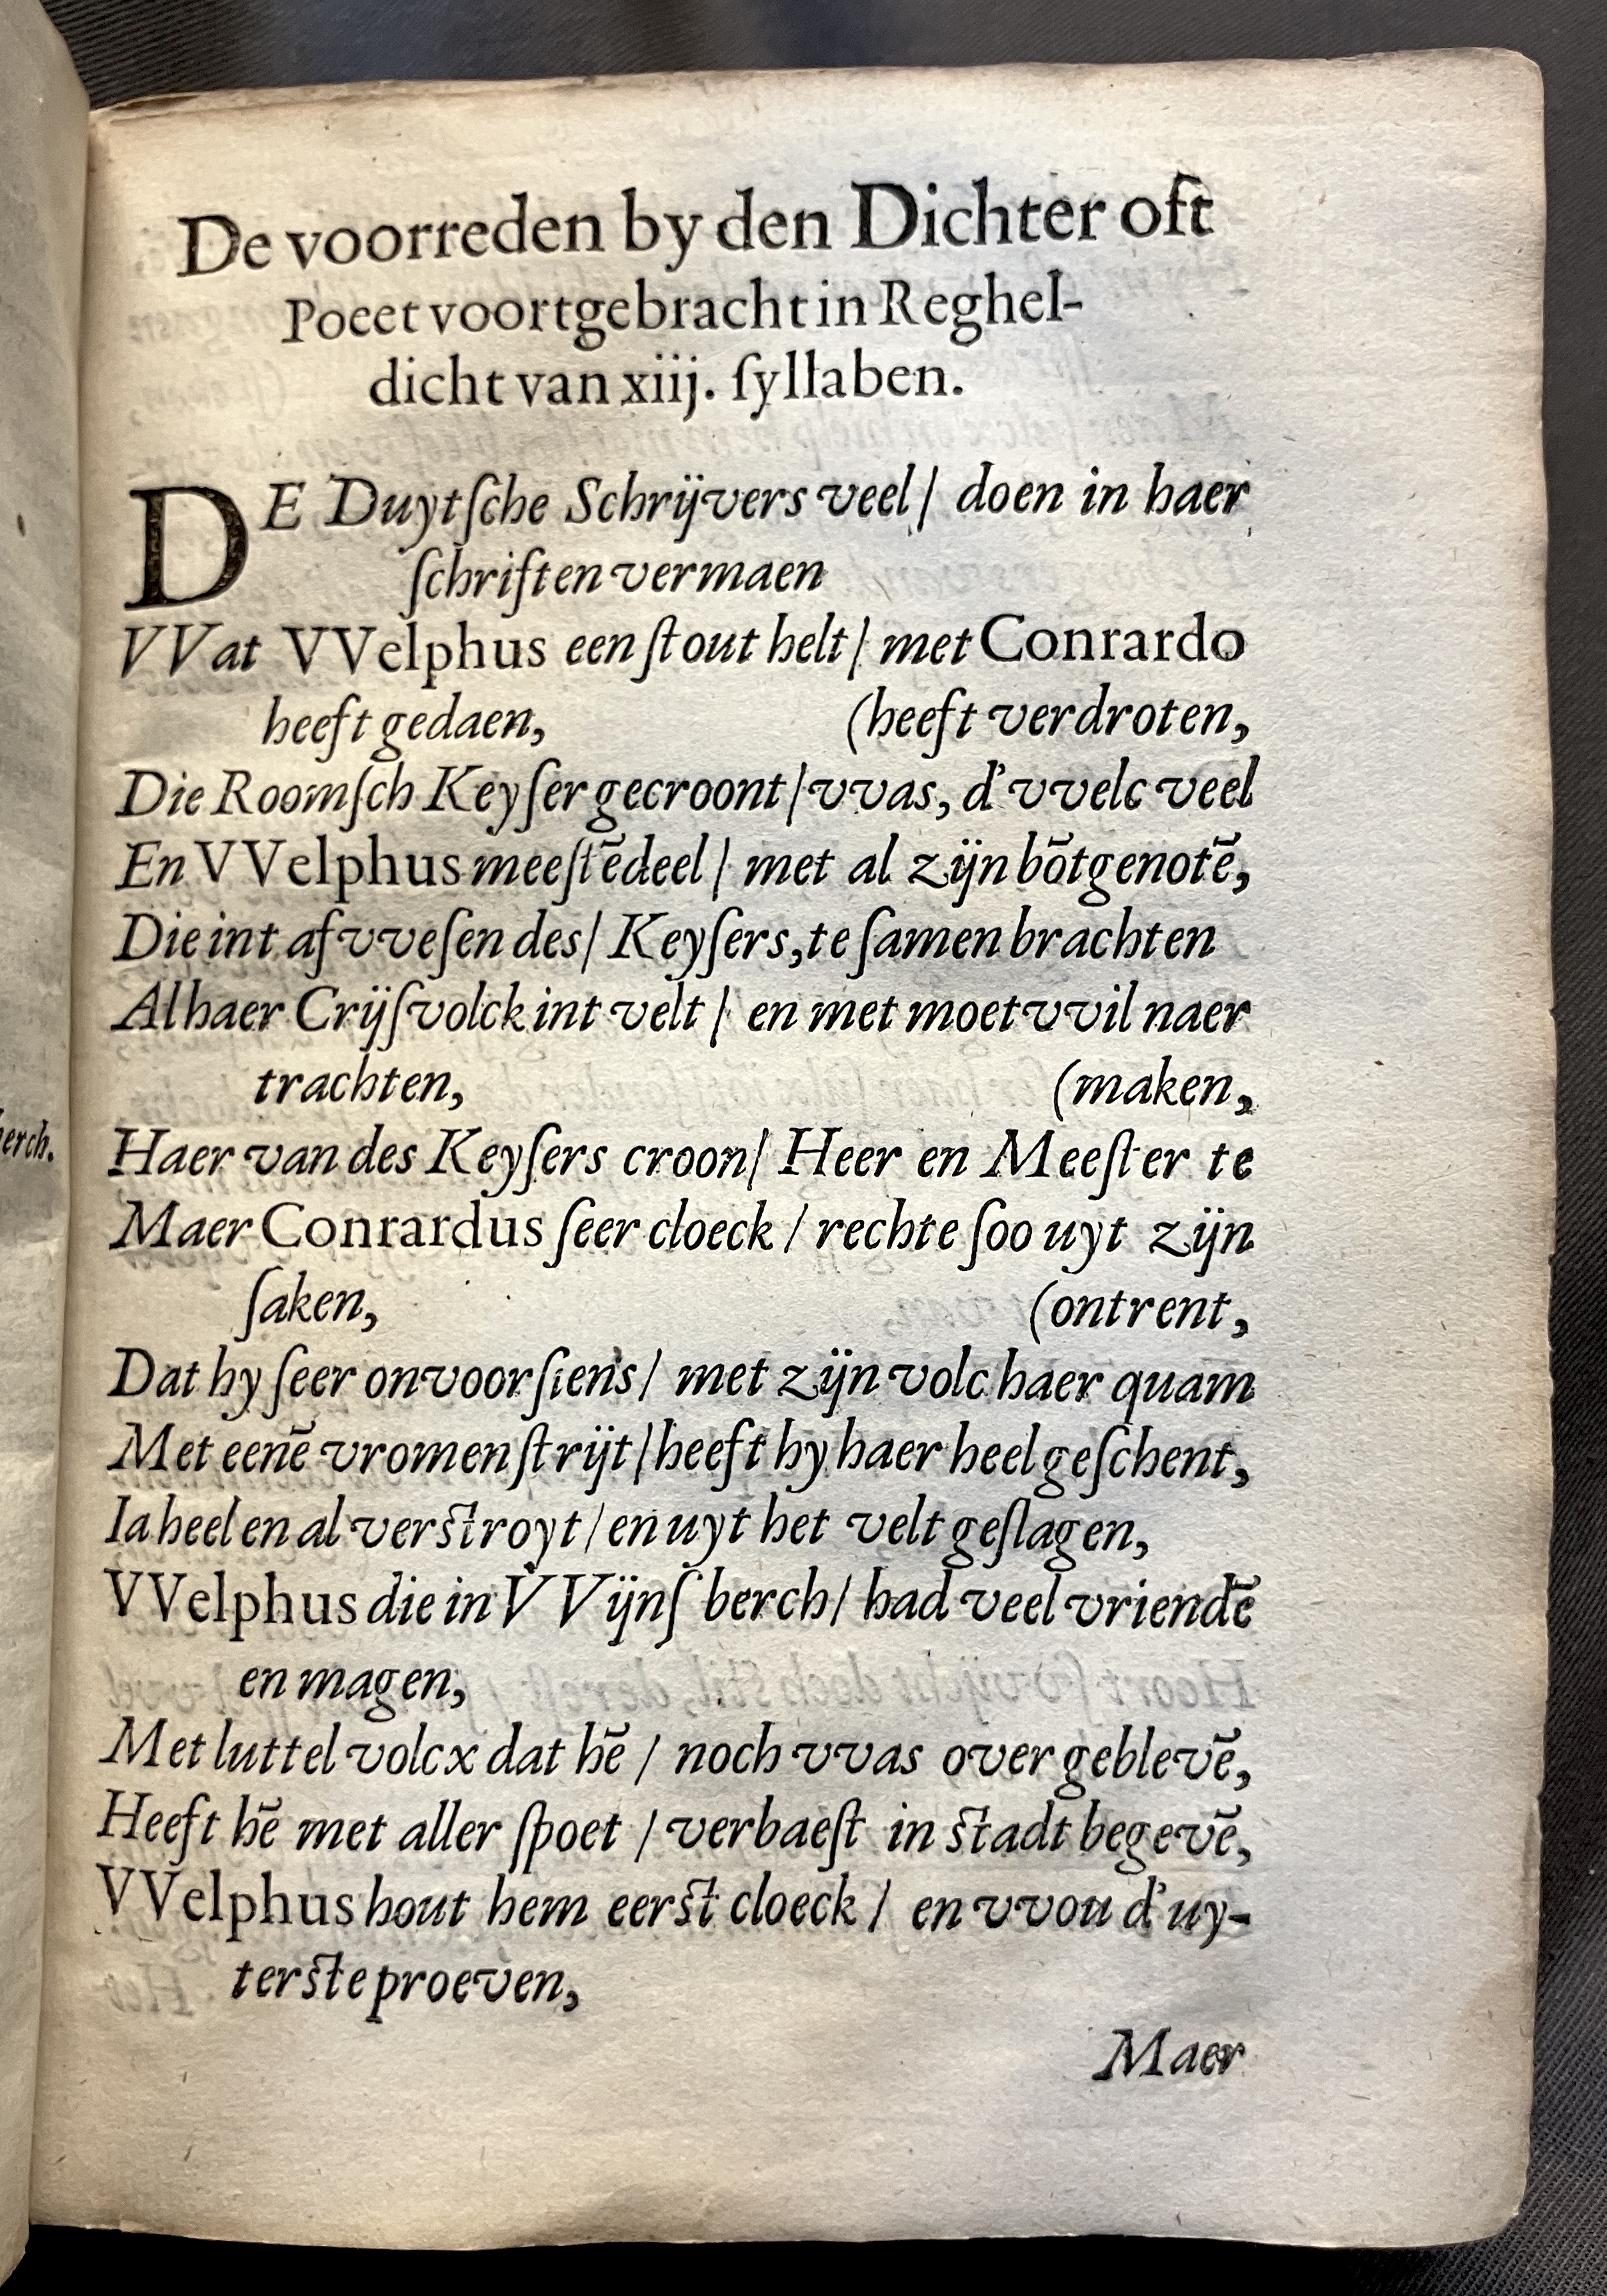 De voorreden by den Dichter oft
Poeet voortgebracht in Reghel-
dicht van xiij. ſyllaben.
DE Duytſche Schrijvers veel/ doen in haer
ſchriften vermaen
VVat VVelphus een ſtout helt/ met Conrardo
heeft gedaen, (heeft verdroten,
Die Roomſch Keyſer gecroont/vvas, d'vvelc veel
En VVelphus meeſtēdeel/ met al zijn bōtgenotē,
Die int afvveſen des/ Keyſers,te ſamen brachten
Al haer Crijſvolck int velt/ en met moetvvil naer
trachten, (maken,
Haer van des Keyſers croon/ Heer en Meeſter te
Maer Conrardus ſeer cloeck / rechte ſoo uyt zijn
ſaken, (ontrent,
Dat hy ſeer onvoorſiens/ met zijn volc haer quam
Met eenē vromen ſtrijt/heeft hy haer heel geſchent,
Ia heel en al verſtroyt/en uyt het velt geſlagen,
VVelphus die in VVijnſberch/ had veel vriendē
en magen,
Met luttel volcx dat hē / noch vvas over geblevē,
Heeft hē met aller ſpoet / verbaeſt in ſtadt begevē,
VVelphus hout hem eerſt cloeck / en vvou d'uy-
terſte proeven,
Maer
erch.